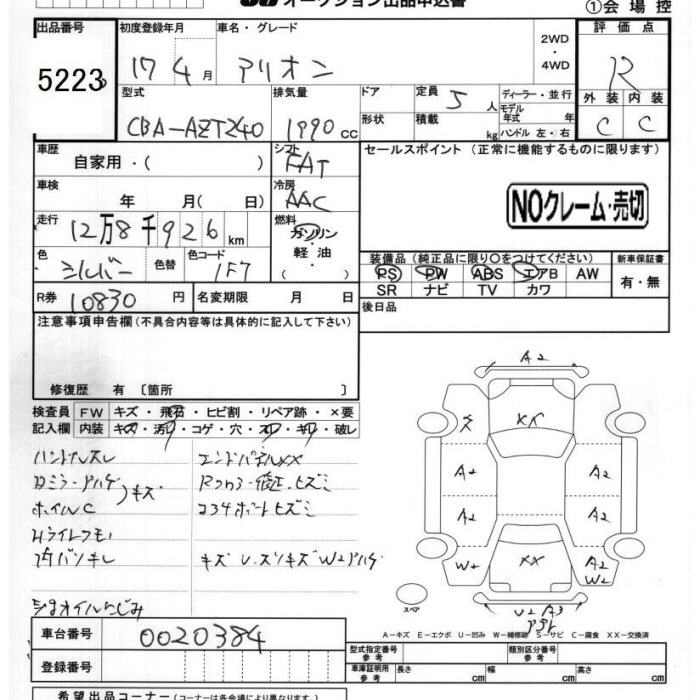 オークション出品申込書
①会場控
出品番号 初度登録年月 車名・グレード 2WD・4WD 評価点
5223 17 4月 アリオン R
型式 排気量 ドア 定員 5人 ディーラー・並行 外装 内装
CBA-AZT240 1990cc 形状 積載 kg モデル年式 年 ハンドル 左・右 C C
車歴 シフト セールスポイント (正常に機能するものに限ります)
自家用・( ) FAT
車検 冷房 NOクレーム・売切
年 月( 日) AAC
走行 燃料
12万8千926km ガソリン
軽油
・( )
色 色替 色コード 装備品 (純正品に限り○をつけてください) 新車保証書
シルバー 1F7 PS PW ABS エアB AW 有・無
R券 10830円 名変期限 月 日 SR ナビ TV カワ
注意事項申告欄 (不具合内容等は具体的に記入して下さい) 後日品
修復歴 有 〔箇所 〕
検査員 FW キズ・飛石・ヒビ割・リペア跡・×要
記入欄 内装 キズ・汚レ・コゲ・穴・スレ・キレ・破レ
ハンドルスレ エンドパネルXX
ロミラーハゲ キズ Rフロアー修正、ヒズミ
ホイルC コタボートヒズミ
Hライトクモリ
内バンキレ キズ U、スリキズ W2ハゲ
ショオイルにじみ
A2
ズ XX
A2 A2
A2 A2
W2 XX A2
W2
スペア U2 A3
A-キズ E-エクボ U-凹み W-補修跡 S-サビ C-腐食 XX-交換済
車台番号 0020384
登録番号
型式指定番号 参考 類別区分番号 参考
車庫証明用 参考 長さ cm 幅 cm 高さ cm
希望出品コーナー (コーナーは各会場により異なります。)